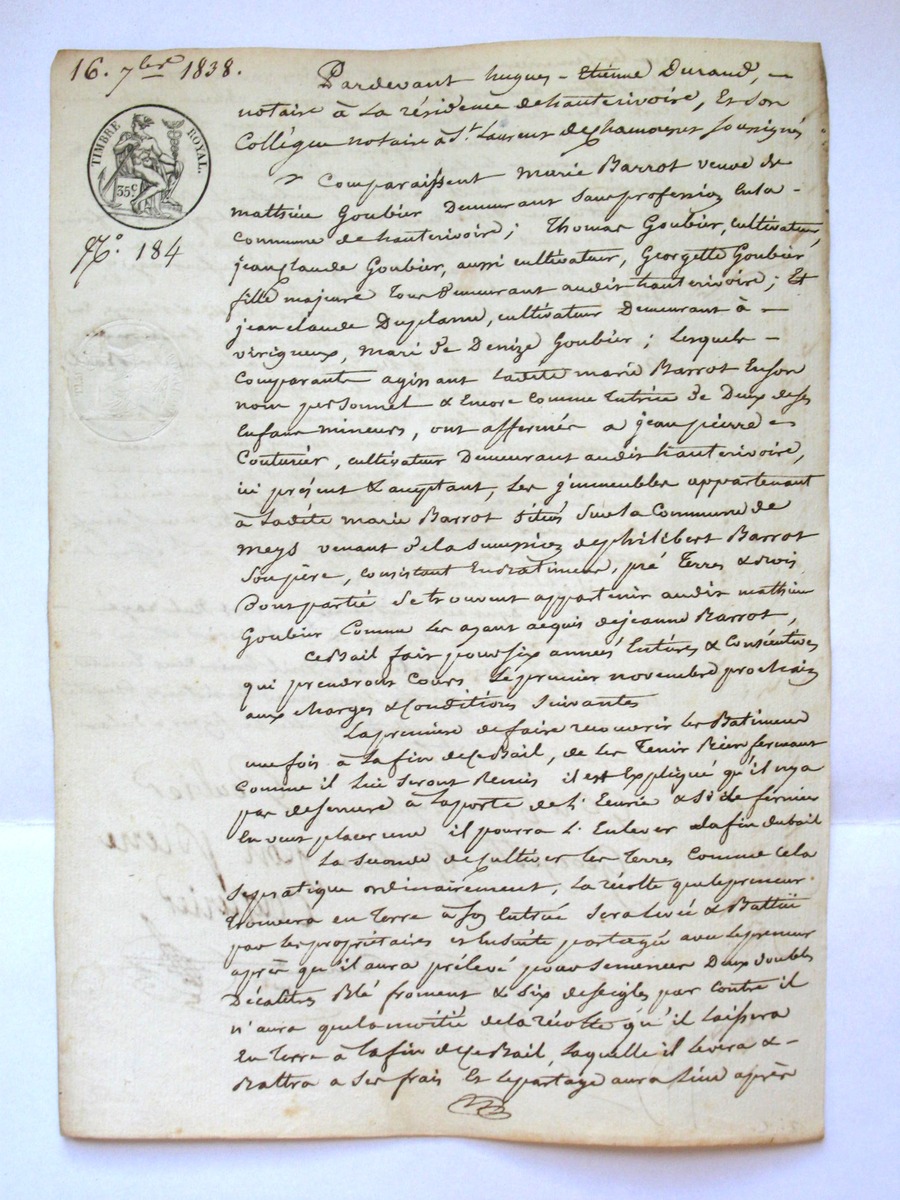 16. 7bre 1838.
TIMBRE ROYAL.
35c
No. 184
Pardevant hugues-Etiénne Durand,
notaire à La résidence dehauterivoire, Et Son
Collégue notaire à St. Laurent dechamousset soussignés
Comparaissent Marie Barrot veuve de
mathieu Goubier Demeurant Sans profession En la
Commune de hauterivoire; Thomas Goubier, cultivateur,
jean claude Goubier, aussi cultivateur, Georgette Goubier,
fille majeure Tous Demeurant audit hauterivoire; Et
jean claude Duplanne, cultivateur Demeurant à
virigneux, Mari De Denize Goubier; Lesquels
Comparants agissant Ladite marie Barrot En son
nom personnel & Encore Comme Tutrice De Deux de ses
Enfans mineurs, ont affermés a jean pierre
Couturier, cultivateur Demeurant audit hauterivoire,
ici présent & acceptant, Les jmmeubles appartenant
à Ladite marie Barrot Situés Sur La Commune de
Meys venant De la Succession de philibert Barrot
Son père, Consistant En Batimens, pré Terres & bois
Dont partie Se trouvent appartenir audit mathieu
Goubier Comme Les ayant acquis de jeanne Barrot,
Ce Bail fait pour Six années Entières & Consécutives
qui prendront Cours Le premier novembre prochain
aux charges & Conditions Suivantes
La première de faire recouvrir Les Batimens
une fois à La fin de Ce Bail, de Les Tenir Bien fermant
Comme il Lui Seront Remis il est Expliqué qu'il n'y a
pas de serrure à La porte de L'Ecurie & Si Le fermier
En veut placer une il pourra L'Enlever à la fin du bail
La Seconde de Cultiver Les Terres Comme Cela
Se pratique ordinairement, La récolte que Le preneur
trouvera en Terre à Son Entrée Sera Levée & Battue
par Les propriétaires et Ensuite partagée avec Le preneur
après qu'il aura prélevé pour Semence Deux doubles
Décalitres Blé froment & Six de seigles par contre il
n'aura que La moitié de La récolte qu'il Laissera
En Terre à La fin de Ce Bail, Laquelle il Levera &
Battra a Ses frais Et Le partage aura Lieu après